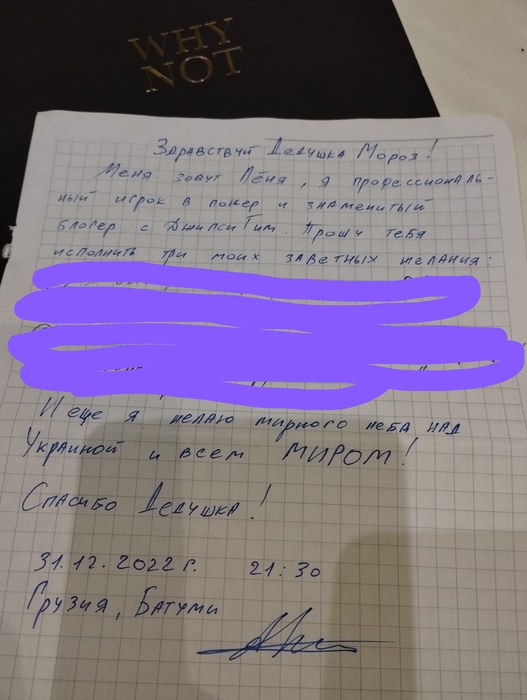 WHY
NOT
Здравствуй Дедушка Мороз!
Меня зовут Лёня, я профессиональ-
ный игрок в покер и знаменитый
блогер с ДжипсиТим. Прошу тебя
исполнить три моих заветных желания:
И еще я желаю мирного неба над
Украиной и всем МИРОМ!
Спасибо Дедушка!
31.12.2022г. 21:30
Грузия, Батуми